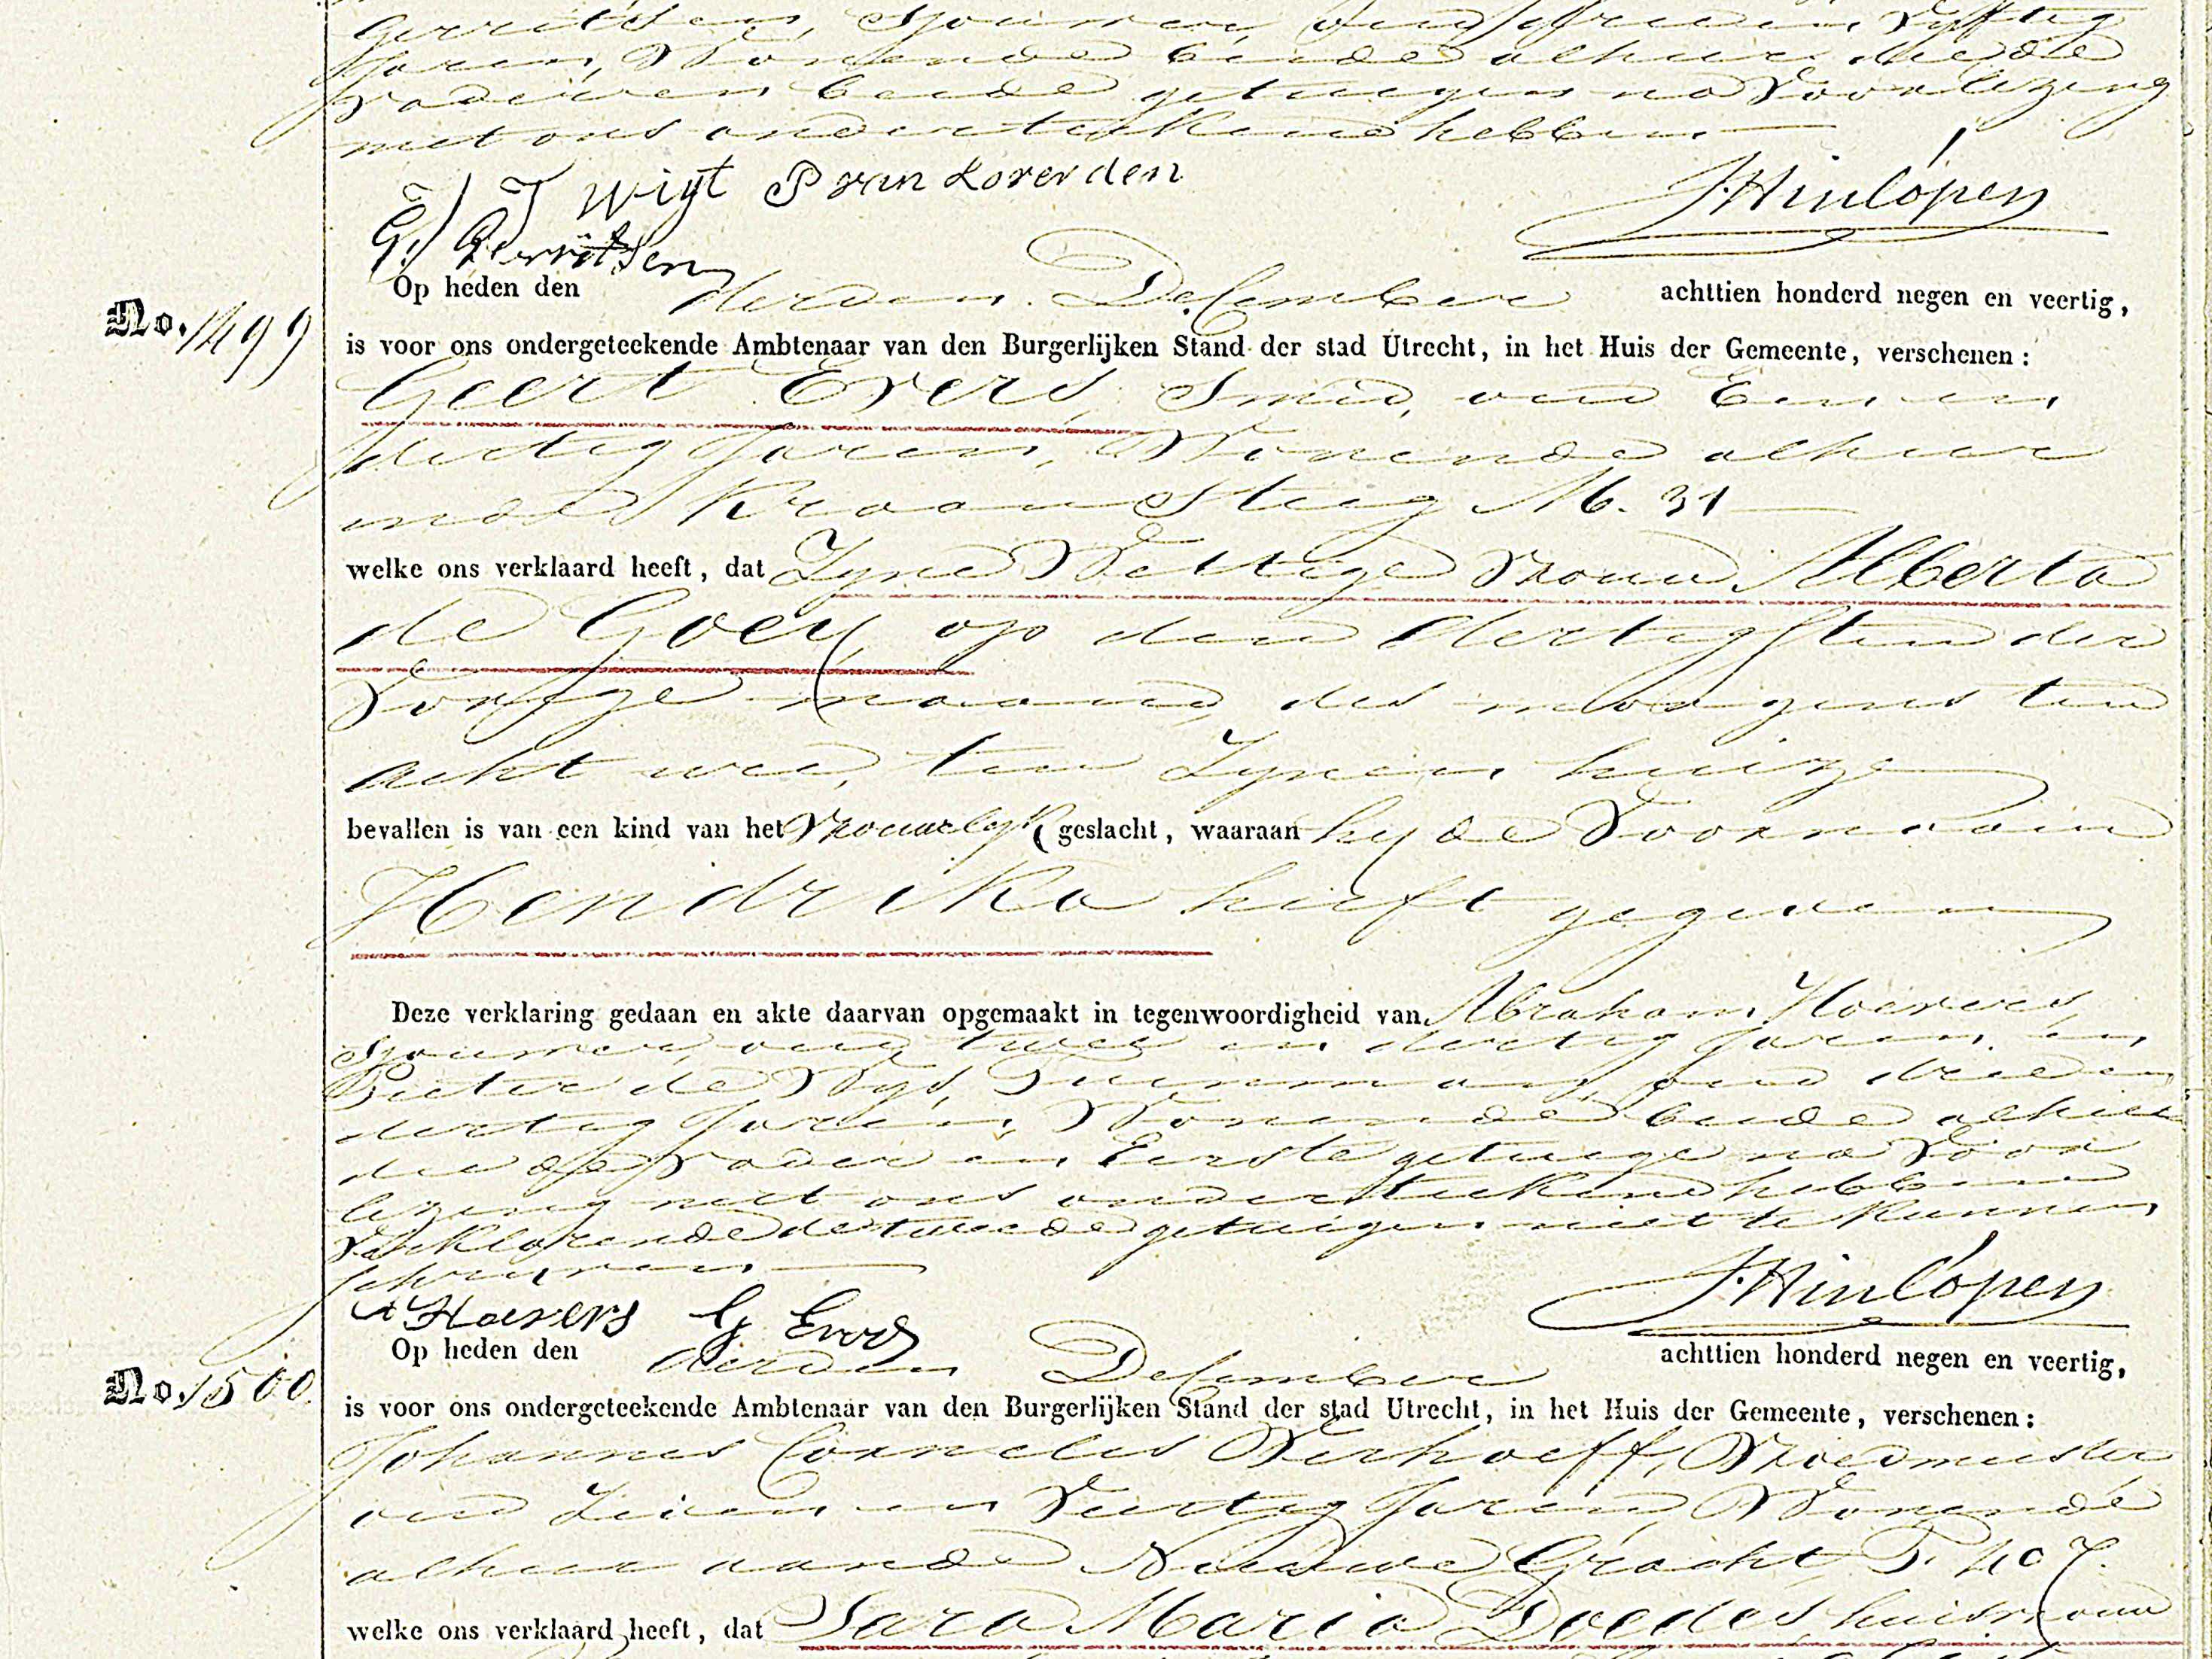 Gerritsen, Sjouwer, oud vijftig
Jaren, Wonende beide alhier die de
vader en beide getuigen na Voorlezing
met ons onderteekend hebben.
J J Wigt P van Loverden
G. Gerritsen JHinlópen
Op heden den derden December achttien honderd negen en veertig,
No. 1499
is voor ons ondergeteekende Ambtenaar van den Burgerlijken Stand der stad Utrecht, in het Huis der Gemeente, verschenen:
Geert Evers, Smid, oud Een en
dertig Jaren, Wonende alhier
in de Kroonsteeg M. 31
welke ons verklaard heeft, dat Zyne Wettige Vrouw Alberta
de Goey, op den dertigsten der
Vorige maand, des morgens ten
acht ure, ten Zynen huize
bevallen is van een kind van het Vrouwelyk geslacht, waaraan hy de Voornaam
Hendrika heeft gegeven
Deze verklaring gedaan en akte daarvan opgemaakt in tegenwoordigheid van Abraham Hoevers,
Sjouwer, oud twee en dertig Jaren, en
Pieter de Wys, Tuinman, oud drie en
dertig Jaren, Wonende beide alhier
die de Vader en Eerste getuige na Voor
lezing met ons onderteekend hebben
Verklarende de tweede getuigen niet te kunnen
schryven.
A Hoevers G Evers JHinlópen
Op heden den derden December achttien honderd negen en veertig,
No. 1500.
is voor ons ondergeteekende Ambtenaar van den Burgerlijken Stand der stad Utrecht, in het Huis der Gemeente, verschenen:
Johannes Cornelis Verhoeff, Vroedmeester
oud Zeven en Veertig Jaren Wonende
alhier aan de Nieuwe Gracht
welke ons verklaard heeft, dat Sara Maria Doedes, huisvrouw